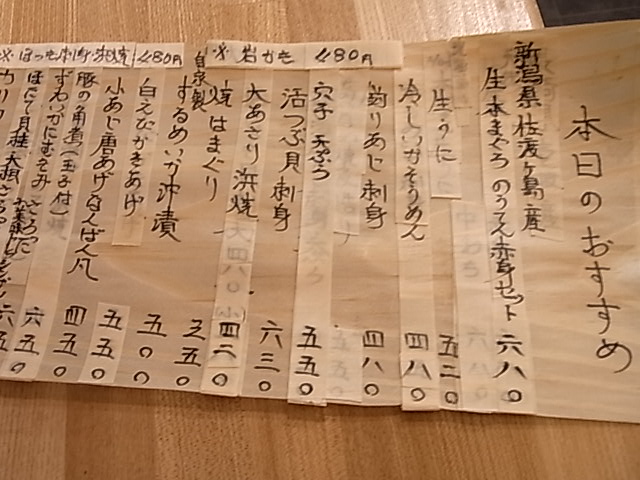 本日のおすすめ
新潟県佐渡ヶ島産
生本まぐろのうてん赤身セット 六八〇
生うに 五二〇
冷しいかそうめん 四八〇
釣りあじ刺身 四八〇
穴子天ぷら 五五〇
活つぶ貝刺身 六三〇
※岩かき 480円
大あさり浜焼 大四八〇 小四二〇
焼はまぐり
自家製
するめいか沖漬 三五〇
白えびかきあげ 五〇〇
※ほっき刺身・浜焼 480円
小あじ唐あげなんばん風 五五〇
豚の角煮(玉子付) 四五〇
ずわいがにむきみ 六五〇
ほたて貝柱大根さらだ 六五〇